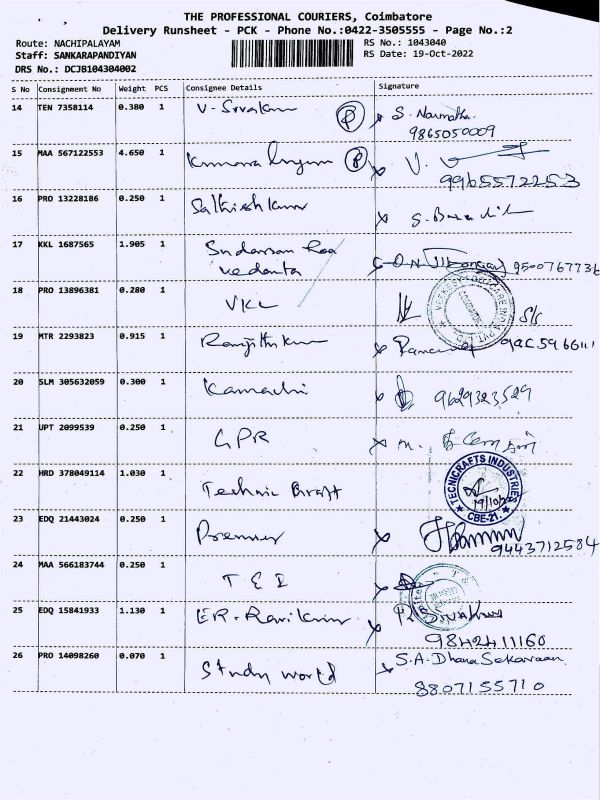 THE PROFESSIONAL COURIERS, Coimbatore
Delivery Runsheet - PCK - Phone No.:0422-3505555 - Page No.:2
Route: NACHIPALAYAM RS No.: 1043040
Staff: SANKARAPANDIYAN RS Date: 19-Oct-2022
DRS No.: DCJB104304002
S No Consignment No Weight PCS Consignee Details Signature
14 TEN 7358114 0.380 1 V-Sivakum P S. Narmatha
9865050009
15 MAA 567122553 4.650 1 P V.
9965572253
16 PRO 13228186 0.250 1 Sathish kumar
17 KKL 1687565 1.905 1 Sudarsan Rea
Vedanta 9500767736
18 PRO 13896381 0.280 1 VKL
19 MTR 2293823 0.915 1 Ranjithkum
20 SLM 305632059 0.300 1 Kamachi 9629323529
21 UPT 2099539 0.250 1 GPR M.
22 HRD 378049114 1.030 1 Technic Craft
TECNICRAFTS INDUSTRIES
19/10/22
CBE-21.
23 EDQ 21443024 0.250 1 Premier
9443712584
24 MAA 566183744 0.250 1 T E I
25 EDQ 15841933 1.130 1 ER. Ravikum R. Sivakum
9842411160
26 PRO 14098260 0.070 1 Study world S.A. Dhana Sekaraan
8807155710